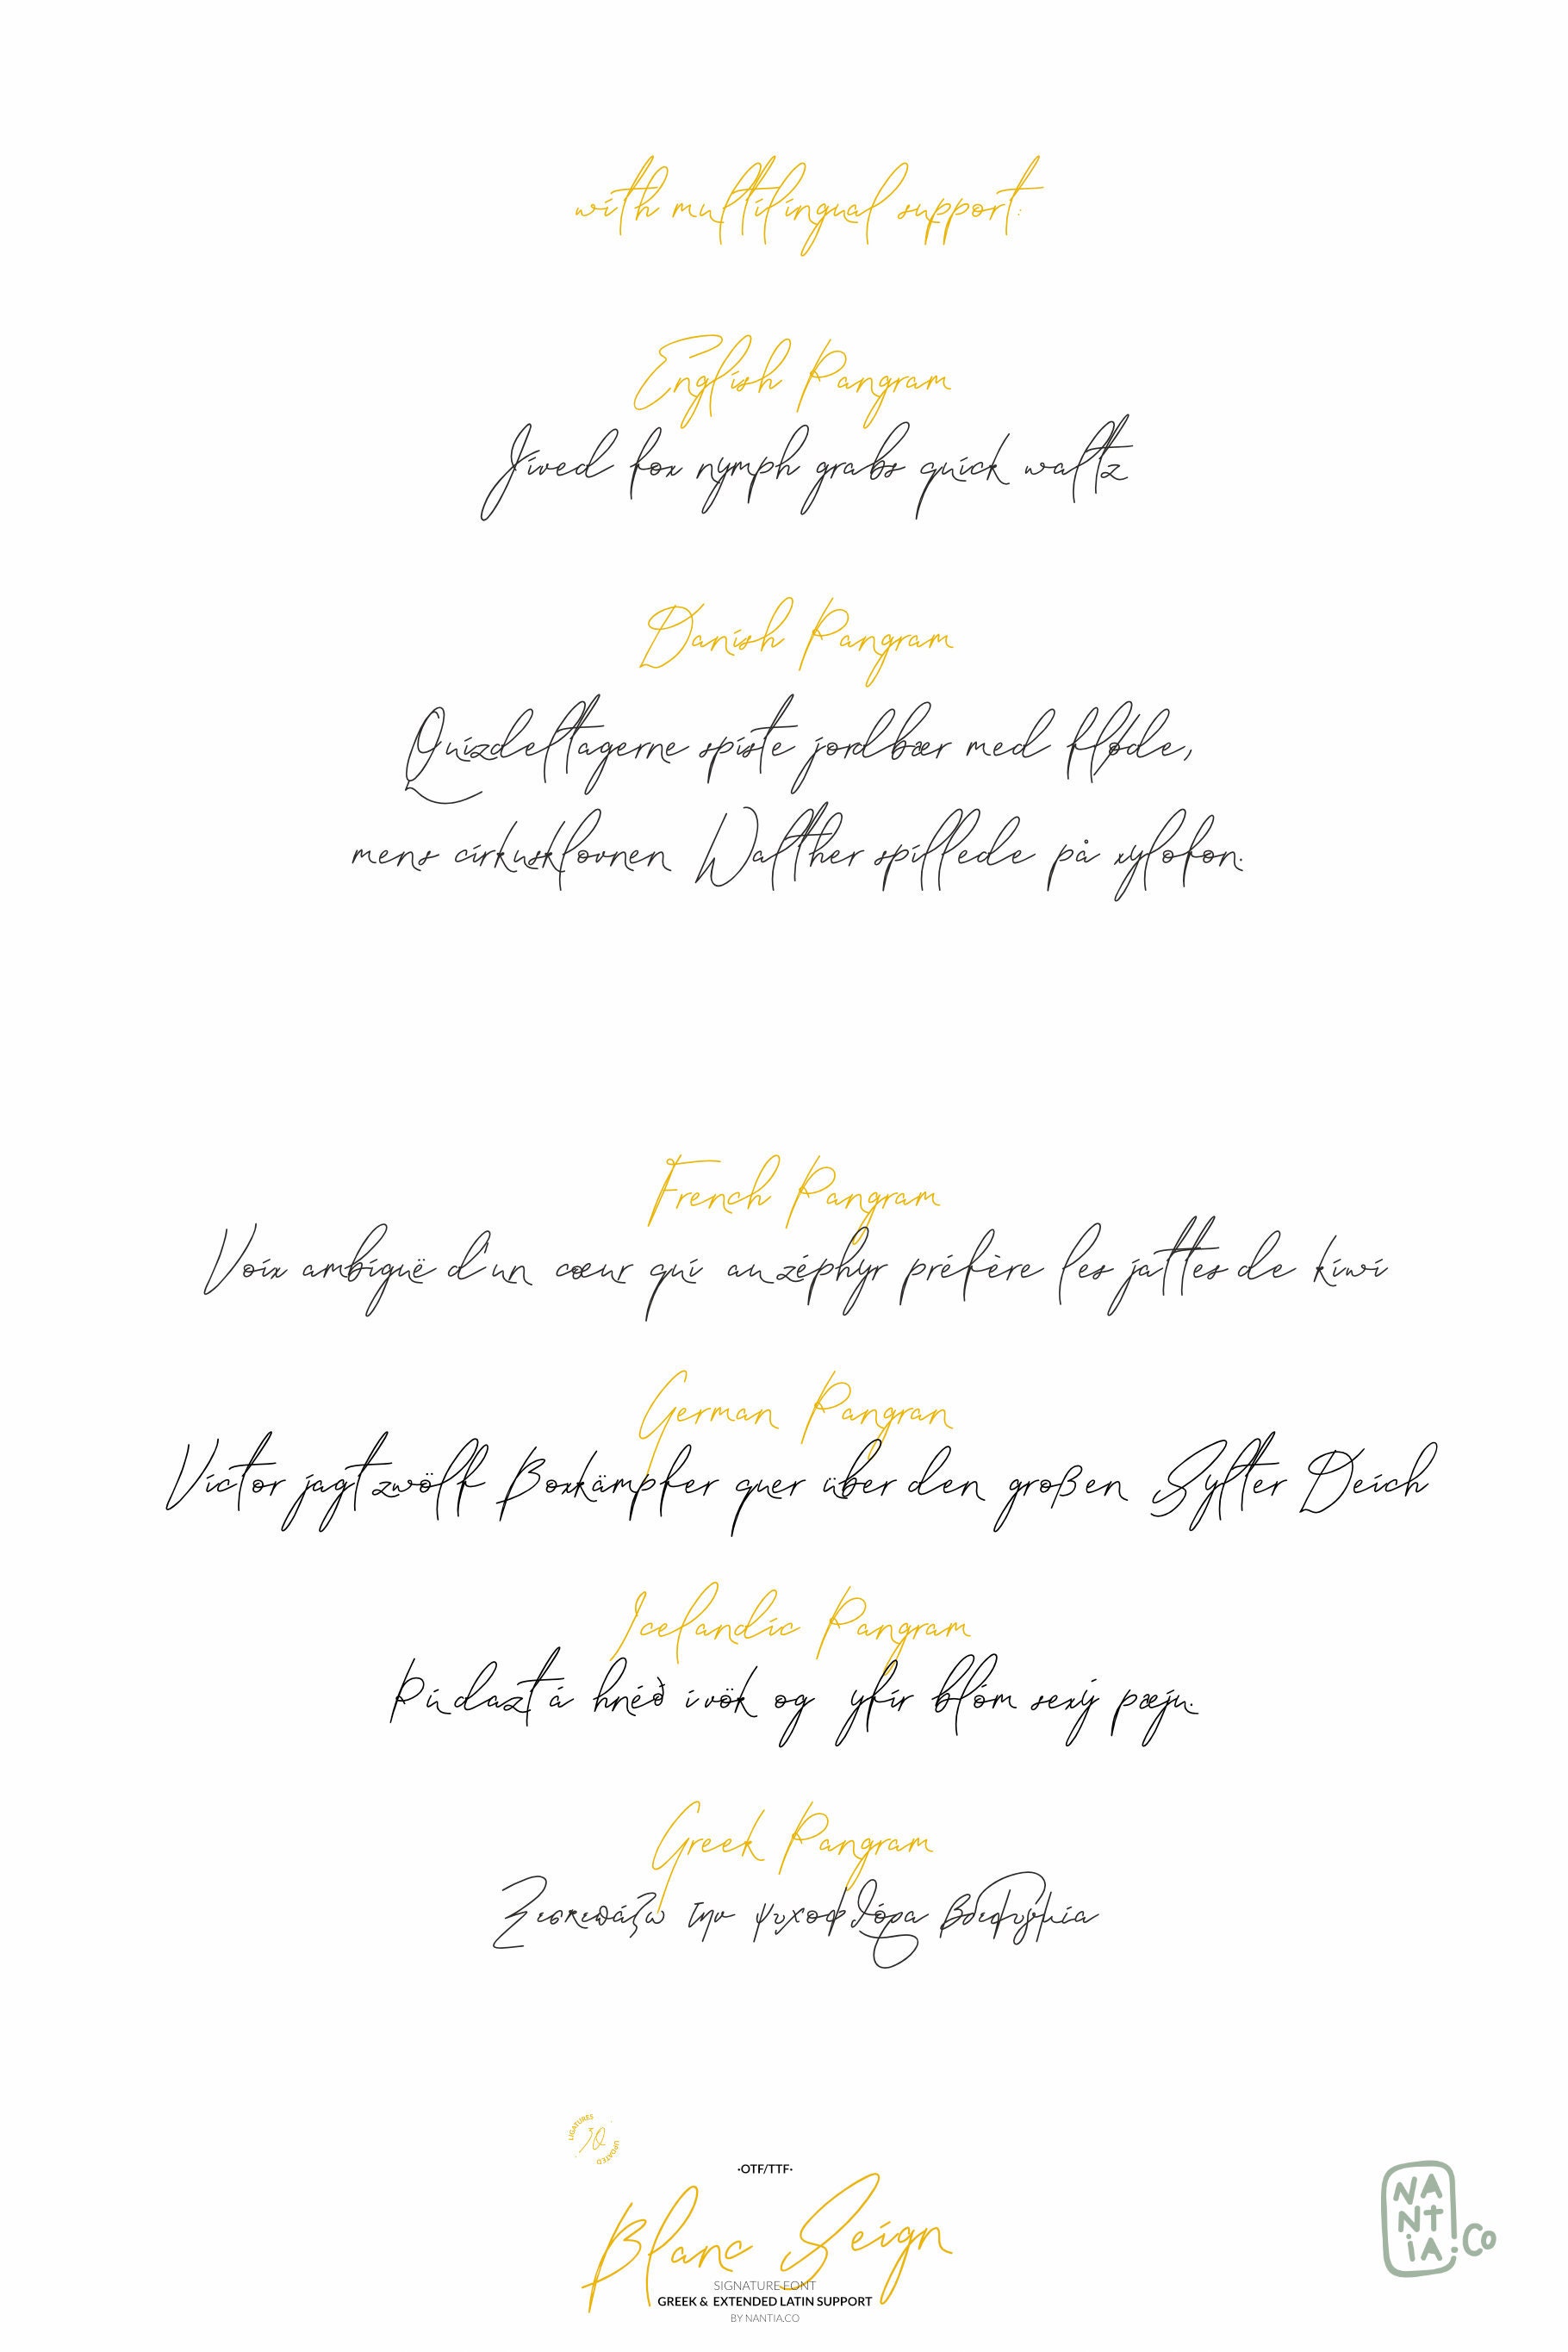 with multilingual support:
English Pangram
Jived fox nymph grabs quick waltz
Danish Pangram
Quizdeltagerne spiste jordbær med fløde,
mens cirkusklovnen Walther spillede på xylofon.
French Pangram
Voix ambiguë d'un cœur qui au zéphyr préfère les jattes de kiwi
German Pangran
Victor jagt zwölf Boxkämpfer quer über den großen Sylter Deich
Icelandic Pangram
Þú dazt á hnéð í vök og yfir blóm sexý pæju.
Greek Pangram
Ξεσκεπάζω την ψυχοφθόρα βδελυγμία
LIGATURES
UPDATED
·OTF/TTF·
Blanc Seign
SIGNATURE FONT
GREEK & EXTENDED LATIN SUPPORT
BY NANTIA.CO
NANtiA.Co